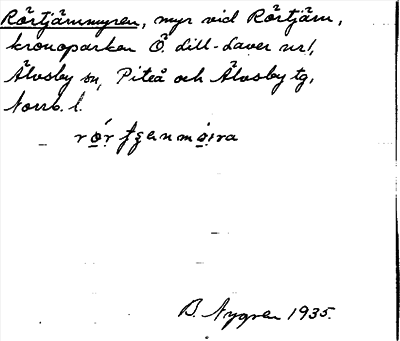 Rörtjärnmyren, myr vid Rörtjärn,
kronoparken Ö. Lill-Laver nr 1,
Älvsby sn, Piteå och Älvsby tg,
Norrb. l.
B. Nygren 1935.